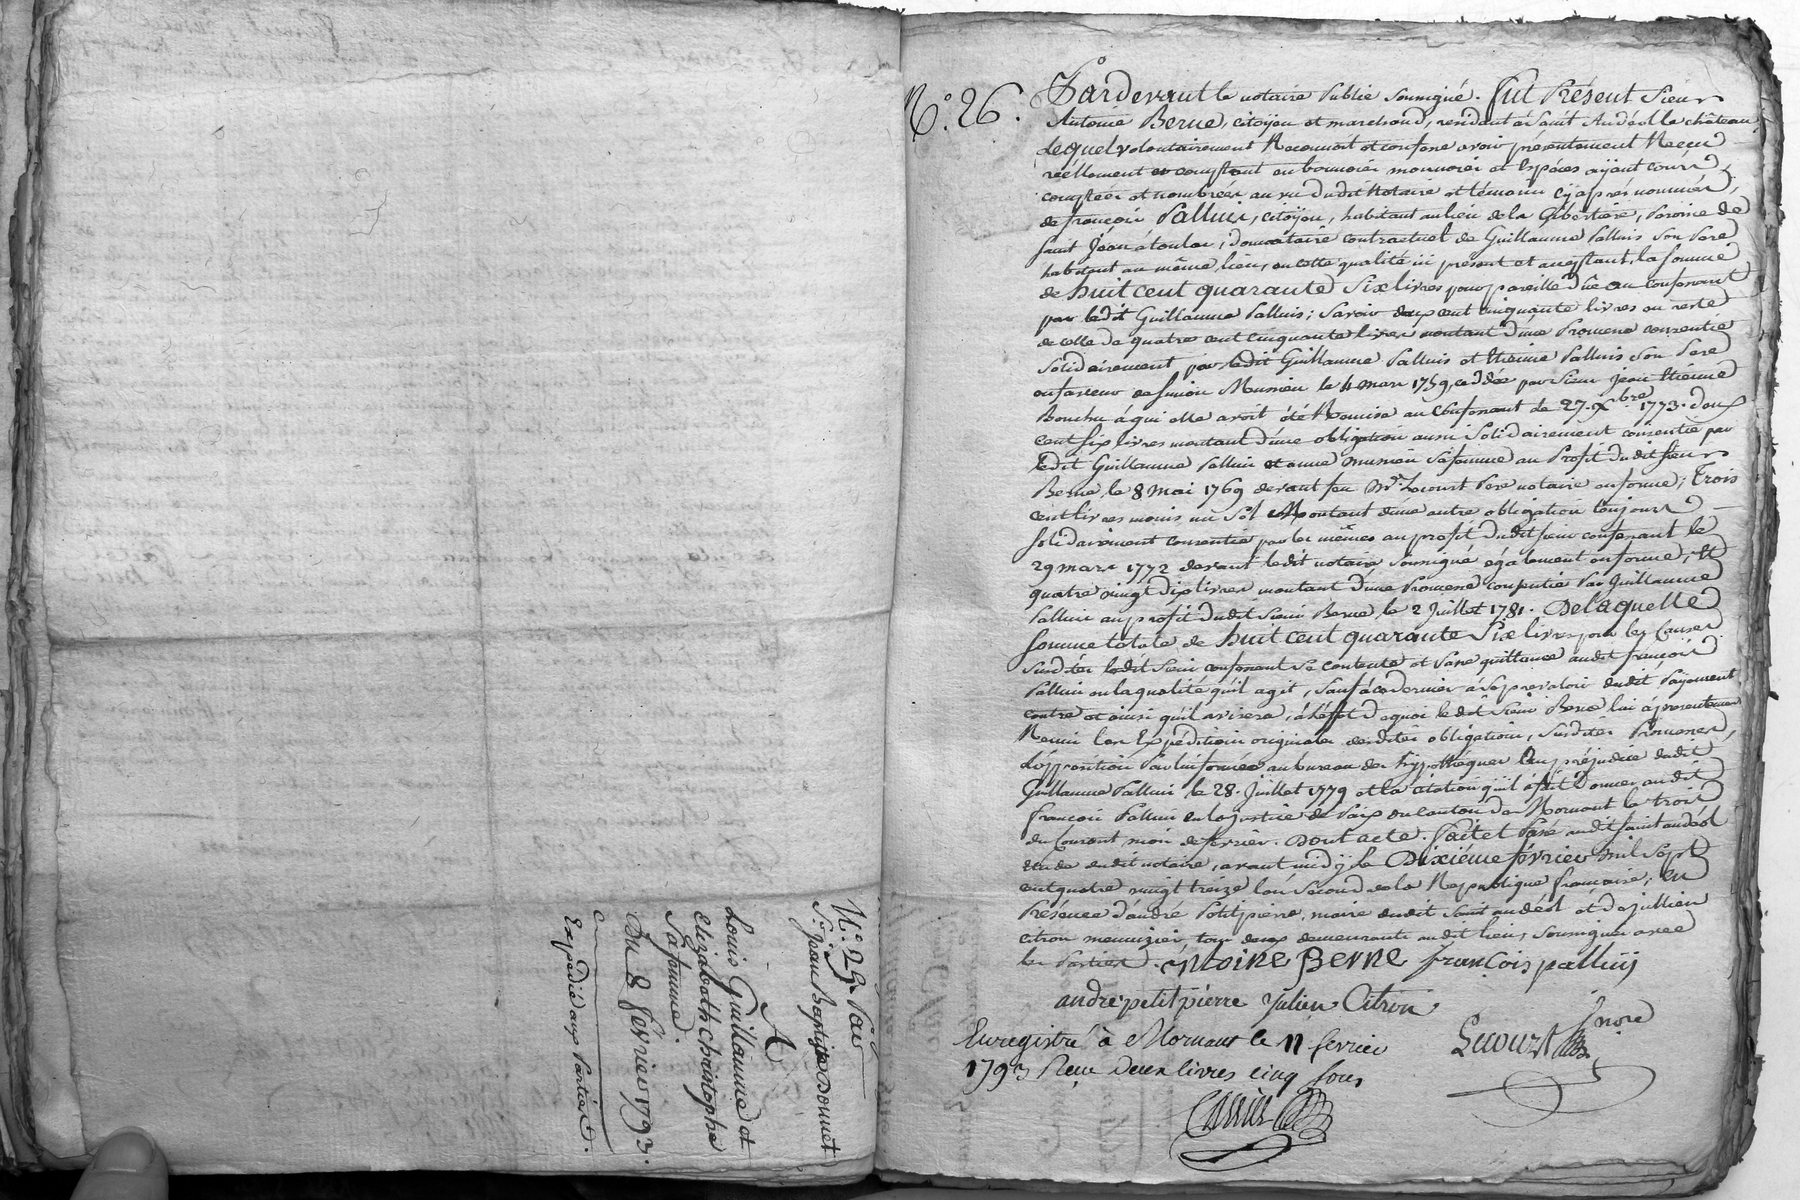 N.° 25. Par
S.r jean Baptiste Donnet
A
Louis Guillaume et
Elizabeth Christophe
Safemme.
Du 8 février 1793.
Expedié aux Parties.
N.° 26.
Pardevant le notaire Public soussigné. fut Présent Sieur
Antoine Berne, citoÿen et marchand, residant à Saint Andéol le château,
Lequel volontairement Reconnoit et confesse avoir présentement Reçu
réellement et comptant en bonnoies monnoies et Espéces aÿant cours,
comptées et nombrées au vu dudit Notaire et témoins cÿ après nommés,
de françois Palluis, citoÿen, habitant au lieu de la Gibertière, Paroisse de
Saint Jéan à toulas, donnataire contractuel de Guillaume Palluis Son Pere
habitant au même lieu, en cette qualité ici présent et aceptant, la somme
de huit cent quarante Six livres pour pareille dûe au confessant
par ledit Guillaume Palluis; Savoir deux cent cinquante livres en reste
de celle de quatre cent cinquante livres montant d'une Promesse consentie
Solidairement par ledit Guillaume Palluis et Etienne Palluis Son Pere
en faveur de simon Mussieu le 4 mars 1759, ceddée par Sieur jean Etienne
Bouchu à qui elle avoit été Remise au Confessant le 27. Xbre 1773. deux
cent six livres montant d'une obligation aussi Solidairement consentie par
ledit Guillaume Palluis et anne mussieu Safemme au Profit dudit Sieur
Berne le 8 mai 1769 devant feu Me. Lecourt Pere notaire en forme; Trois
cent livres moins un Sol Montant d'une autre obligation toujours
Solidairement consentie par les mêmes au profit dudit Sieur confessant le
29 mars 1772 devant ledit notaire Soussigné également en forme; Et
quatre vingt dix livres montant d'une Promesse consentie Par Guillaume
Palluis au profit dudit Sieur Berne le 2 Juillet 1781. De laquelle
Somme totale de huit cent quarante Six livres pour les Causes
Susdites ledit Sieur confessant Se contente et Passe quittance audit françois
Palluis en la qualité qu'il agit, Sauf à ce dernier à Se prevaloir dudit Païement
contre et ainsi qu'il avisera, à l'éffet de quoi ledit Sieur Berne lui a presentement
Remis les Expéditions originales desdites obligations, Susdites Promesses,
L'opposition Par lui formée au bureau des hÿpothéques au préjudice dudit
Guillaume Palluis le 28. Juillet 1779 et la citation qu'il a fait Donner audit
françois Palluis en la justice de Paix du canton de Mornant le trois
du Courant, mois de février. Dont acte. Fait et Passé audit Saint andéol
Etude dudit notaire, avant midÿ le Dixiéme février mil Sept
cent quatre vingt treize l'an Second de la République française; En
Présence d'andré Petitpierre, maire dudit Saint andéol et de jullien
citron menuizier, tous deux demeurants audit lieu, Soussignés avec
les Parties. Antoine Berne françois palluij
andre petitpierre Julien Citron
Lecourt nore
Enregistré à Mornant le 11 fevrier
1793 Reçu deux livres cinq sous
Carrier